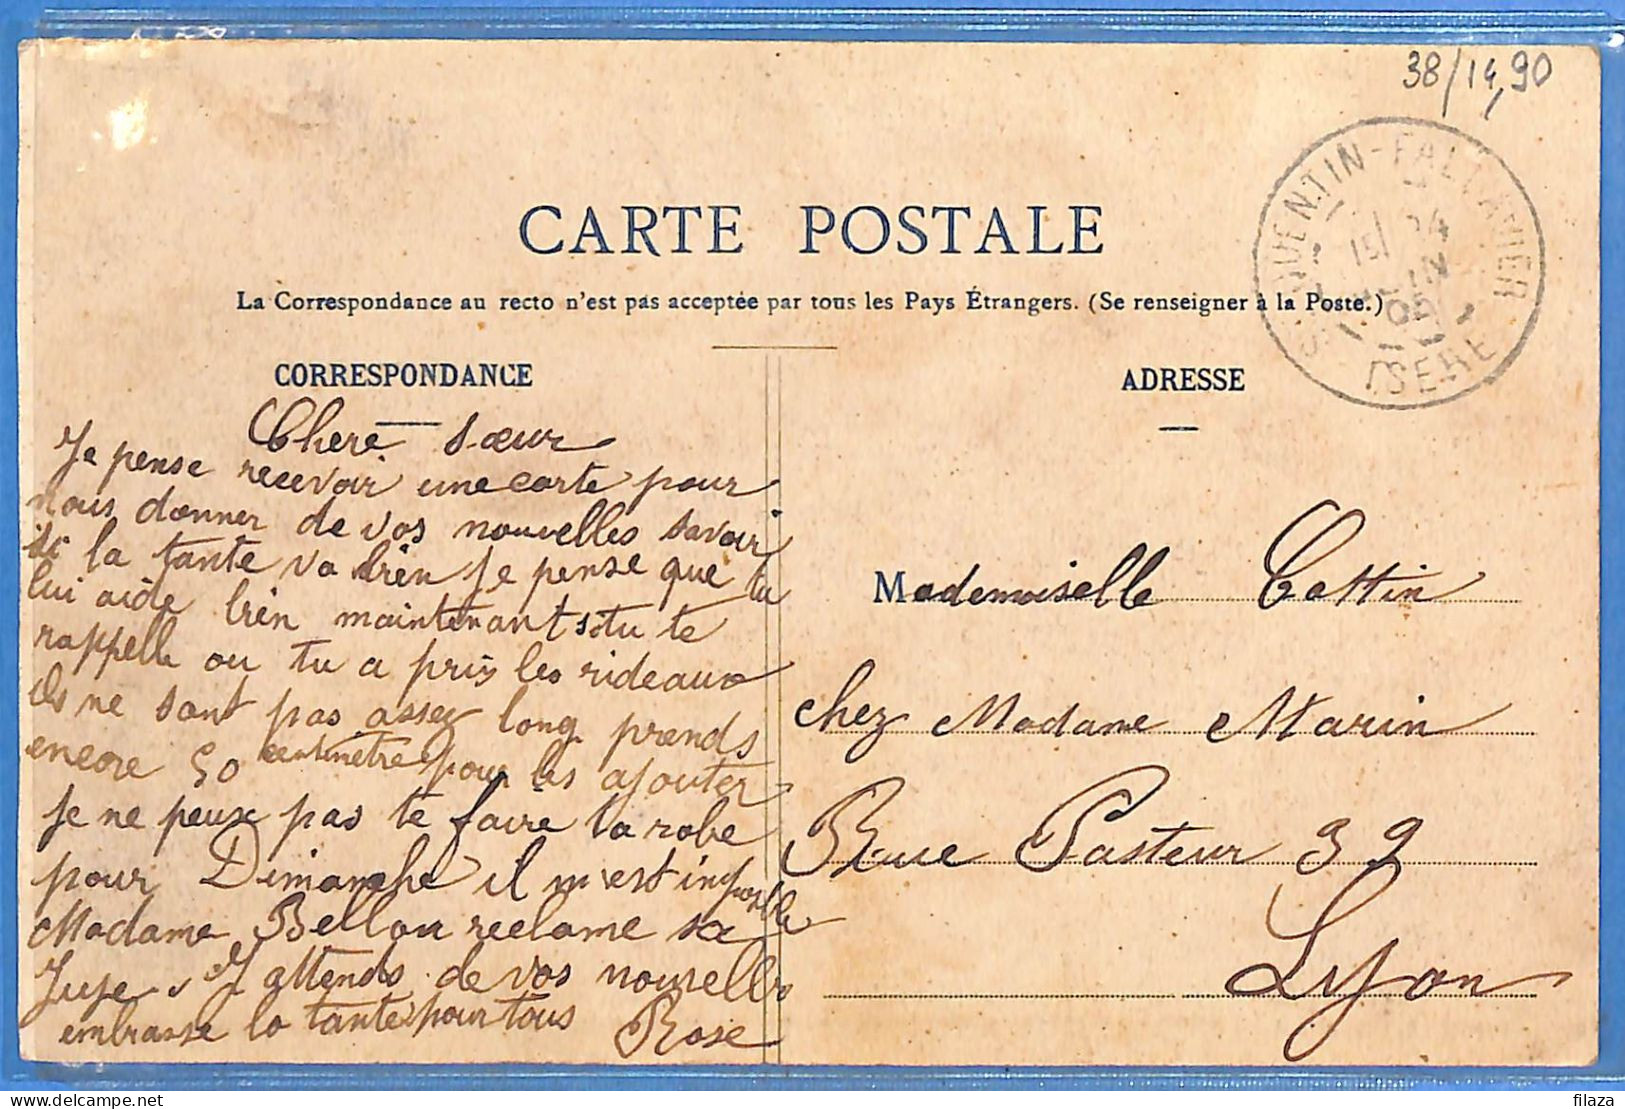 38/14,90
ST QUENTIN-FALLAVIER
15 24
JUIN
ISERE
CARTE POSTALE
La Correspondance au recto n'est pas acceptée par tous les Pays Étrangers. (Se renseigner à la Poste.)
CORRESPONDANCE
Chere sœur
Je pense recevoir une carte pour
nous donner de vos nouvelles savoir
si la tante va bien je pense que tu
lui aide bien maintenant si tu te
rappelle ou tu a pris les rideaux
ils ne sont pas assez long prends
encore 50 centimetre pour les ajouter
je ne peux pas te faire la robe
pour Dimanche il m'est impossible
Madame Bellon reclame sa
Jupe J attends de vos nouvelles
embrasse la tante pour tous Rose
ADRESSE
Mademoiselle Cottin
chez Madame Marin
Rue Pasteur 39
Lyon
filaza